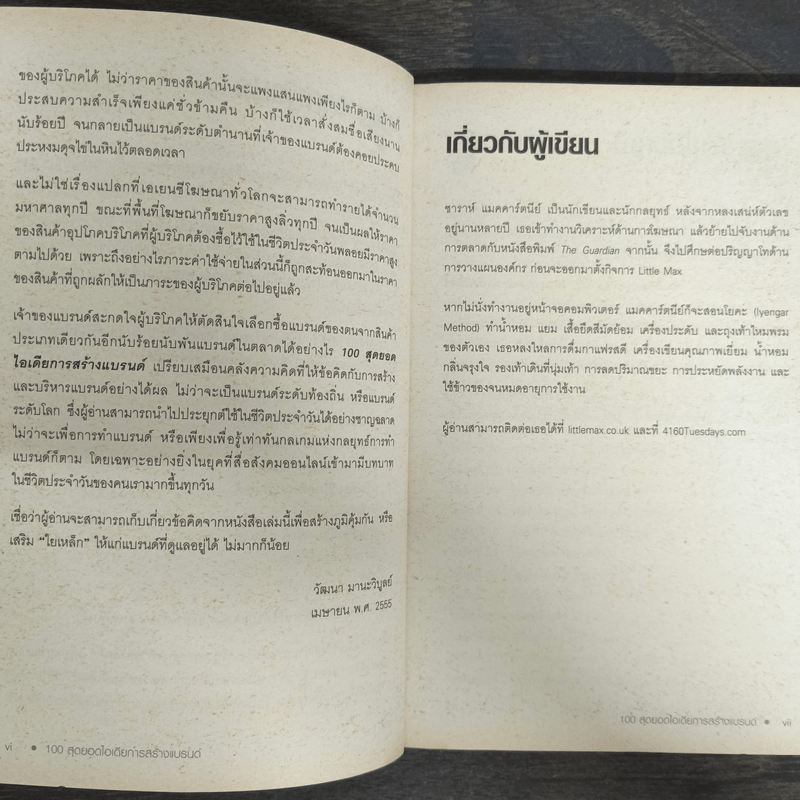 ของผู้บริโภคได้ ไม่ว่าราคาของสินค้านั้นจะแพงแสนแพงเพียงไรก็ตาม บ้างก็
ประสบความสำเร็จเพียงแค่ชั่วข้ามคืน บ้างก็ใช้เวลาสั่งสมชื่อเสียงนาน
นับร้อยปี จนกลายเป็นแบรนด์ระดับตำนานที่เจ้าของแบรนด์ต้องคอยประคบ
ประหงมดุจไข่ในหินไว้ตลอดเวลา
และไม่ใช่เรื่องแปลกที่เอเยนซีโฆษณาทั่วโลกจะสามารถทำรายได้จำนวน
มหาศาลทุกปี ขณะที่พื้นที่โฆษณาก็ขยับราคาสูงลิ่วทุกปี จนเป็นผลให้ราคา
ของสินค้าอุปโภคบริโภคที่ผู้บริโภคต้องซื้อไว้ใช้ในชีวิตประจำวันพลอยมีราคาสูง
ตามไปด้วย เพราะถึงอย่างไรภาระค่าใช้จ่ายในส่วนนี้ก็ถูกสะท้อนออกมาในราคา
ของสินค้าที่ถูกผลักให้เป็นภาระของผู้บริโภคต่อไปอยู่แล้ว
เจ้าของแบรนด์สะกดใจผู้บริโภคให้ตัดสินใจเลือกซื้อแบรนด์ของตนจากสินค้า
ประเภทเดียวกันอีกนับร้อยนับพันแบรนด์ในตลาดได้อย่างไร 100 สุดยอด
ไอเดียการสร้างแบรนด์ เปรียบเสมือนคลังความคิดที่ให้ข้อคิดกับการสร้าง
และบริหารแบรนด์อย่างได้ผล ไม่ว่าจะเป็นแบรนด์ระดับท้องถิ่น หรือแบรนด์
ระดับโลก ซึ่งผู้อ่านสามารถนำไปประยุกต์ใช้ในชีวิตประจำวันได้อย่างชาญฉลาด
ไม่ว่าจะเพื่อการทำแบรนด์ หรือเพียงเพื่อรู้เท่าทันกลเกมแห่งกลยุทธ์การทำ
แบรนด์ก็ตาม โดยเฉพาะอย่างยิ่งในยุคที่สื่อสังคมออนไลน์เข้ามามีบทบาท
ในชีวิตประจำวันของคนเรามากขึ้นทุกวัน
เชื่อว่าผู้อ่านจะสามารถเก็บเกี่ยวข้อคิดจากหนังสือเล่มนี้เพื่อสร้างภูมิคุ้มกัน หรือ
เสริม “ใยเหล็ก” ให้แก่แบรนด์ที่ดูแลอยู่ได้ ไม่มากก็น้อย
วัฒนา มานะวิบูลย์
เมษายน พ.ศ. 2555
vi • 100 สุดยอดไอเดียการสร้างแบรนด์
เกี่ยวกับผู้เขียน
ซาราห์ แมคคาร์ตนีย์ เป็นนักเขียนและนักกลยุทธ์ หลังจากหลงเสน่ห์ตัวเลข
อยู่นานหลายปี เธอเข้าทำงานวิเคราะห์ด้านการโฆษณา แล้วย้ายไปจับงานด้าน
การตลาดกับหนังสือพิมพ์ The Guardian จากนั้น จึงไปศึกษาต่อปริญญาโทด้าน
การวางแผนองค์กร ก่อนจะออกมาตั้งกิจการ Little Max
หากไม่นั่งทำงานอยู่หน้าจอคอมพิวเตอร์ แมคคาร์ตนีย์ก็จะสอนโยคะ (Iyengar
Method) ทำน้ำหอม แยม เสื้อยืดสีมัดย้อม เครื่องประดับ และถุงเท้าไหมพรม
ของตัวเอง เธอหลงใหลการดื่มกาแฟรสดี เครื่องเขียนคุณภาพเยี่ยม น้ำหอม
กลิ่นจรุงใจ รองเท้าเดินที่นุ่มเท้า การลดปริมาณขยะ การประหยัดพลังงาน และ
ใช้ข้าวของจนหมดอายุการใช้งาน
ผู้อ่านสามารถติดต่อเธอได้ที่ littlemax.co.uk และที่ 4160Tuesdays.com
100 สุดยอดไอเดียการสร้างแบรนด์ • vii